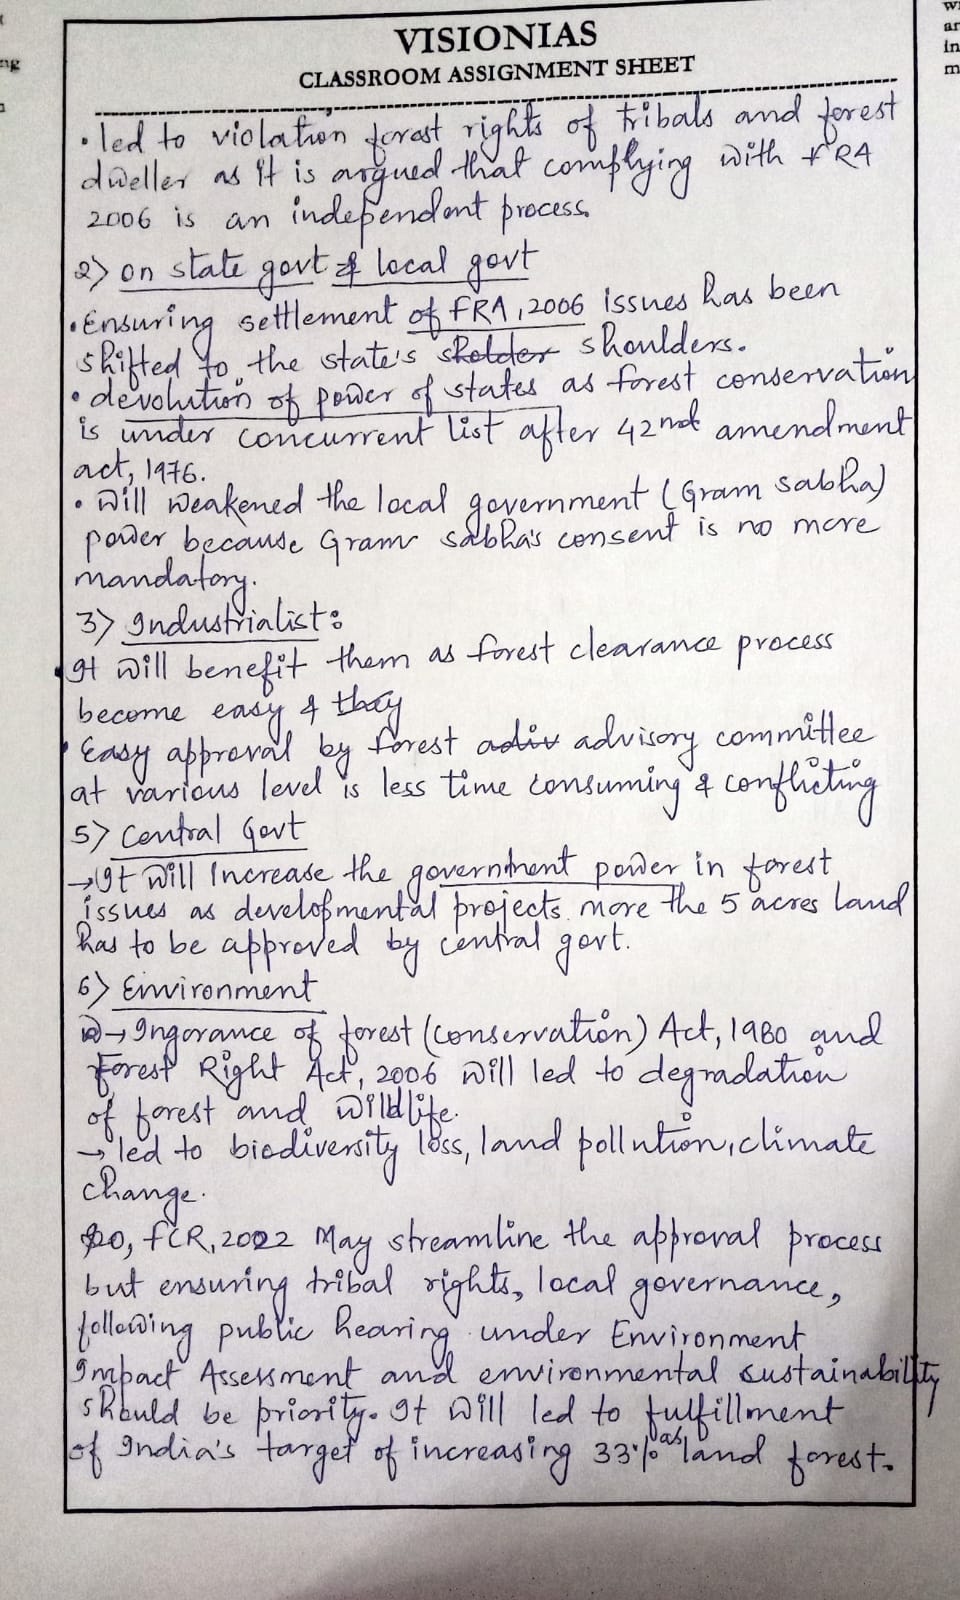 VISIONIAS
CLASSROOM ASSIGNMENT SHEET
• led to violation forest rights of tribals and forest
dweller as it is argued that complying with FRA
2006 is an independent process.
2) on state govt & local govt
• Ensuring settlement of FRA, 2006 issues has been
shifted to the state's sholder shoulders.
• devolution of power of states as forest conservation
is under concurrent list after 42nd amendment
act, 1976.
• Will weakened the local government (Gram sabha)
power because Gram sabha's consent is no more
mandatory.
3) Industrialist:
• It will benefit them as forest clearance process
become easy & they
• Easy approval by forest adiv advisory committee
at various level is less time consuming & conflicting
5) Central Govt
→ It will Increase the government power in forest
issues as developmental projects more the 5 acres land
has to be approved by central govt.
6) Environment
→ Ingorance of forest (conservation) Act, 1980 and
Forest Right Act, 2006 will led to degradation
of forest and wildlife.
→ led to biodiversity loss, land pollution, climate
change.
So, FCR, 2022 May streamline the approval process
but ensuring tribal rights, local governance,
following public hearing under Environment
Impact Assessment and environmental sustainability
should be priority. It will led to fulfillment
of India's target of increasing 33% as land forest.